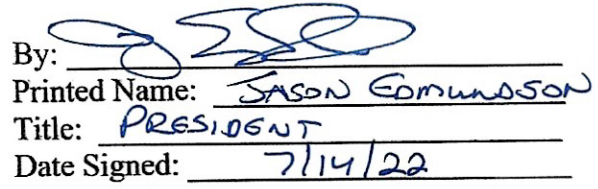 By:
Printed Name: JASON EDMUNDSON
Title: PRESIDENT
Date Signed: 7/14/22